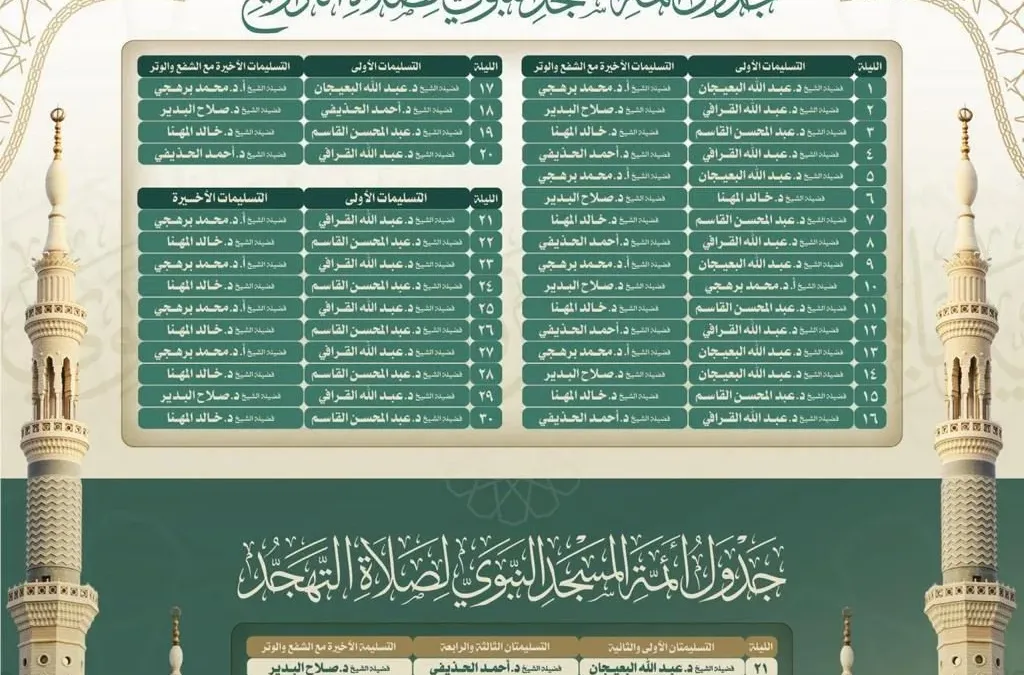 جدول أئمة المسجد النبوي لصلاة التراويح
الليلة التسليمات الأولى التسليمات الأخيرة مع الشفع والوتر
١ فضيلة الشيخ د. عبد الله البعيجان فضيلة الشيخ أ. د. محمد برهجي
٢ فضيلة الشيخ د. عبد الله القرافي فضيلة الشيخ د. صلاح البدير
٣ فضيلة الشيخ د. عبد المحسن القاسم فضيلة الشيخ د. خالد المهنا
٤ فضيلة الشيخ د. عبد الله القرافي فضيلة الشيخ د. أحمد الحذيفي
٥ فضيلة الشيخ د. عبد الله البعيجان فضيلة الشيخ أ. د. محمد برهجي
٦ فضيلة الشيخ د. خالد المهنا فضيلة الشيخ د. صلاح البدير
٧ فضيلة الشيخ د. عبد المحسن القاسم فضيلة الشيخ د. خالد المهنا
٨ فضيلة الشيخ د. عبد الله القرافي فضيلة الشيخ د. أحمد الحذيفي
٩ فضيلة الشيخ د. عبد الله البعيجان فضيلة الشيخ أ. د. محمد برهجي
١٠ فضيلة الشيخ أ. د. محمد برهجي فضيلة الشيخ د. صلاح البدير
١١ فضيلة الشيخ د. عبد المحسن القاسم فضيلة الشيخ د. خالد المهنا
١٢ فضيلة الشيخ د. عبد الله القرافي فضيلة الشيخ د. أحمد الحذيفي
١٣ فضيلة الشيخ د. عبد الله البعيجان فضيلة الشيخ أ. د. محمد برهجي
١٤ فضيلة الشيخ د. عبد الله البعيجان فضيلة الشيخ د. صلاح البدير
١٥ فضيلة الشيخ د. عبد المحسن القاسم فضيلة الشيخ د. خالد المهنا
١٦ فضيلة الشيخ د. عبد الله القرافي فضيلة الشيخ د. أحمد الحذيفي
الليلة التسليمات الأولى التسليمات الأخيرة مع الشفع والوتر
١٧ فضيلة الشيخ د. عبد الله البعيجان فضيلة الشيخ أ. د. محمد برهجي
١٨ فضيلة الشيخ د. أحمد الحذيفي فضيلة الشيخ د. صلاح البدير
١٩ فضيلة الشيخ د. عبد المحسن القاسم فضيلة الشيخ د. خالد المهنا
٢٠ فضيلة الشيخ د. عبد الله القرافي فضيلة الشيخ د. أحمد الحذيفي
الليلة التسليمات الأولى التسليمات الأخيرة
٢١ فضيلة الشيخ د. عبد الله القرافي فضيلة الشيخ أ. د. محمد برهجي
٢٢ فضيلة الشيخ د. عبد المحسن القاسم فضيلة الشيخ د. خالد المهنا
٢٣ فضيلة الشيخ د. عبد الله القرافي فضيلة الشيخ أ. د. محمد برهجي
٢٤ فضيلة الشيخ د. عبد المحسن القاسم فضيلة الشيخ د. خالد المهنا
٢٥ فضيلة الشيخ د. عبد الله القرافي فضيلة الشيخ أ. د. محمد برهجي
٢٦ فضيلة الشيخ د. عبد المحسن القاسم فضيلة الشيخ د. خالد المهنا
٢٧ فضيلة الشيخ د. عبد الله القرافي فضيلة الشيخ أ. د. محمد برهجي
٢٨ فضيلة الشيخ د. عبد المحسن القاسم فضيلة الشيخ د. خالد المهنا
٢٩ فضيلة الشيخ د. عبد الله القرافي فضيلة الشيخ د. صلاح البدير
٣٠ فضيلة الشيخ د. عبد المحسن القاسم فضيلة الشيخ د. خالد المهنا
جَدْوَلُ أَئِمَّةِ المَسْجِدِ النَّبَوِيِّ لِصَلَاةِ التَّهَجُّدِ
الليلة التسليمتان الأولى والثانية التسليمتان الثالثة والرابعة التسليمة الأخيرة مع الشفع والوتر
٢١ فضيلة الشيخ د. عبد الله البعيجان فضيلة الشيخ د. أحمد الحذيفي فضيلة الشيخ د. صلاح البدير